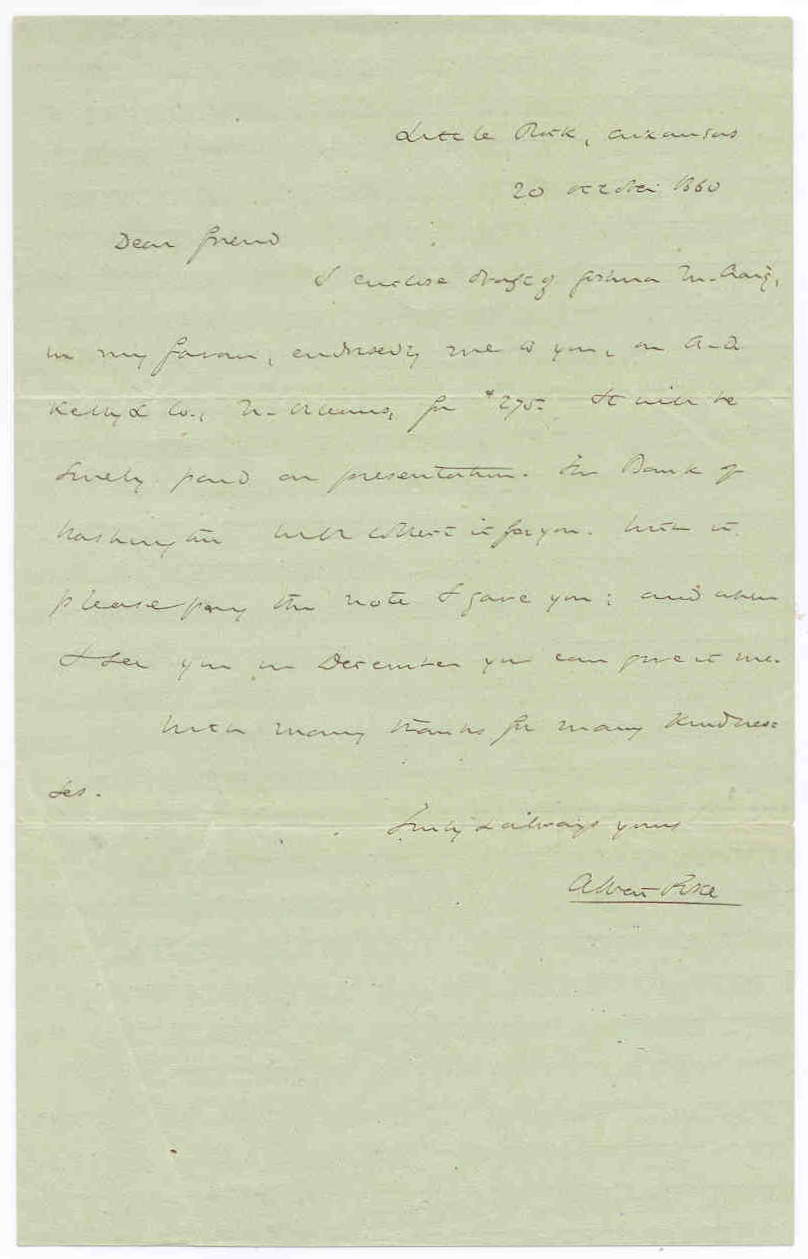 Little Rock, Arkansas
20 October 1860
Dear friend
I enclose draft of Joshua M. Craig,
in my favour, endorsed by me to you, on A. D.
Kelly & Co., N. Orleans, for $275. It will be
surely paid on presentation. The Bank of
Washington will collect it for you. With it
please pay the note I gave you; and when
I see you in December you can give it me.
With many thanks for many kindnes=
ses.
Truly & always yours
Albert Pike